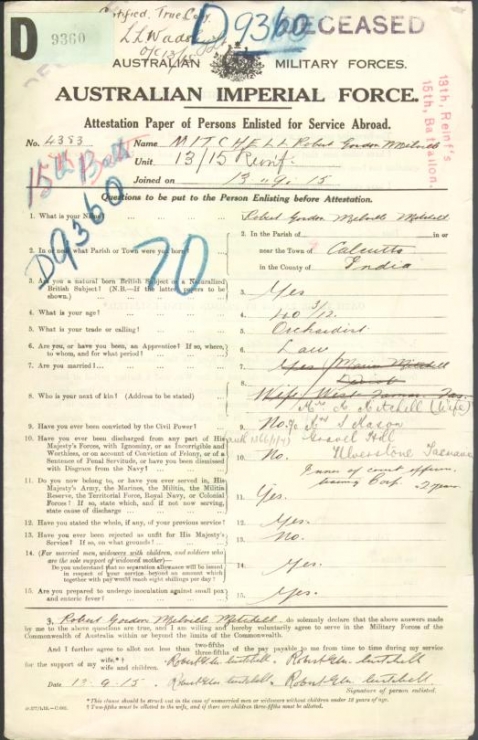 Certified True Copy
D9360
DECEASED
D 9360
AUSTRALIAN MILITARY FORCES.
AUSTRALIAN IMPERIAL FORCE.
Attestation Paper of Persons Enlisted for Service Abroad.
13th. Reinf's
15th. Battalion.
No. 4383 Name MITCHELL Robert Gordon Melville
15th Battn Unit 13/15 Reinf.
Joined on 13.9.15
Questions to be put to the Person Enlisting before Attestation.
D9360
70
1. What is your Name? Robert Gordon Melville Mitchell
2. In or near what Parish or Town were you born? 2. In the Parish of in or
near the Town of Calcutta
in the County of India
3. Are you a natural born British Subject or a Naturalized British Subject? (N.B.—If the latter, papers to be shown.) 3. Yes
4. What is your age? 4. 40 3/12.
5. What is your trade or calling? 5. Orchardist
6. Are you, or have you been, an Apprentice? If so, where, to whom, and for what period? 6. Law
7. Are you married? 7. Yes
8. Who is your next of kin? (Address to be stated) 8. Wife
Mrs M Mitchell (Wife)
Mason
Gravel Hill
Ulverstone Tasmania
9. Have you ever been convicted by the Civil Power? 9. No.
10. Have you ever been discharged from any part of His Majesty's Forces, with Ignominy, or as Incorrigible and Worthless, or on account of Conviction of Felony, or of a Sentence of Penal Servitude, or have you been dismissed with Disgrace from the Navy? 10. No.
11. Do you now belong to, or have you ever served in, His Majesty's Army, the Marines, the Militia, the Militia Reserve, the Territorial Force, Royal Navy, or Colonial Forces? If so, state which, and if not now serving, state cause of discharge 11. Yes.
12. Have you stated the whole, if any, of your previous service? 12. Yes.
13. Have you ever been rejected as unfit for His Majesty's Service? If so, on what grounds? 13. No.
14. (For married men, widowers with children, and soldiers who are the sole support of widowed mother)—
Do you understand that no separation allowance will be issued in respect of your service beyond an amount which together with pay would reach eight shillings per day? 14. Yes.
15. Are you prepared to undergo inoculation against small pox and enteric fever? 15. Yes.
I, Robert Gordon Melville Mitchell do solemnly declare that the above answers made
by me to the above questions are true, and I am willing and hereby voluntarily agree to serve in the Military Forces of the
Commonwealth of Australia within or beyond the limits of the Commonwealth.
And I further agree to allot not less than two-fifths three-fifths of the pay payable to me from time to time during my service
for the support of my wife.*† wife and children.
Date 13.9.15.
Signature of person enlisted.
*This clause should be struck out in the case of unmarried men or widowers without children under 18 years of age.
†Two-fifths must be allotted to the wife, and if there are children three-fifths must be allotted.